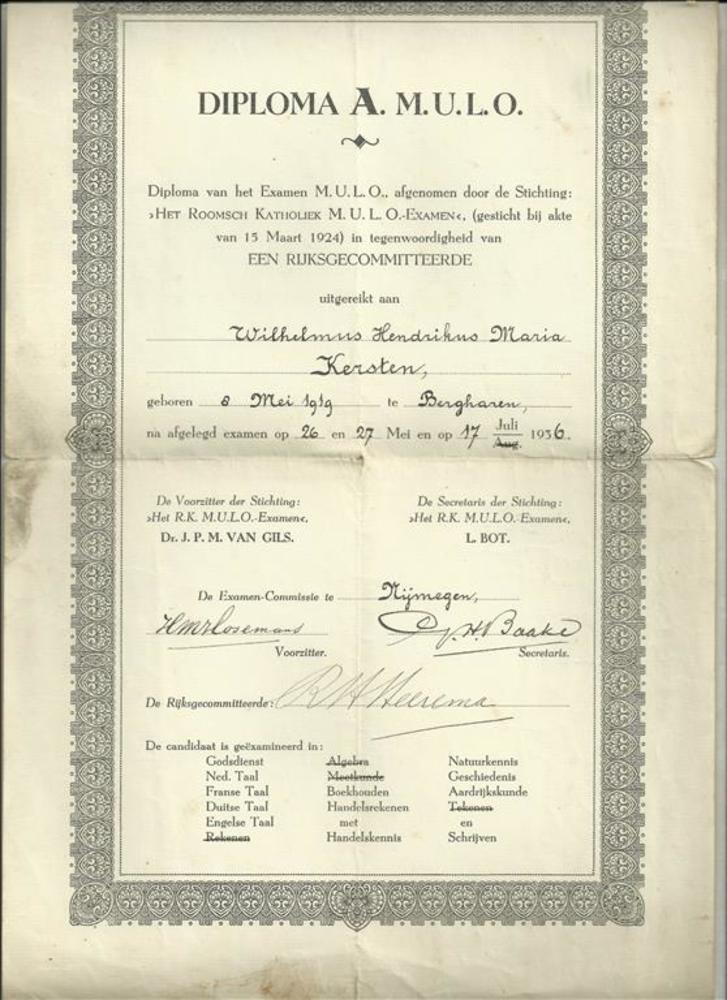 DIPLOMA A. M.U.L.O.
Diploma van het Examen M.U.L.O., afgenomen door de Stichting:
›HET ROOMSCH KATHOLIEK M.U.L.O.-EXAMEN‹, (gesticht bij akte
van 15 Maart 1924) in tegenwoordigheid van
EEN RIJKSGECOMMITTEERDE
uitgereikt aan
Wilhelmus Hendrikus Maria
Kersten,
geboren 8 Mei 1919 te Bergharen,
na afgelegd examen op 26 en 27 Mei en op 17 Juli Aug. 1936.
De Voorzitter der Stichting: De Secretaris der Stichting:
›Het R.K. M.U.L.O.-Examen‹, ›Het R.K. M.U.L.O.-Examen‹,
Dr. J. P. M. VAN GILS. L. BOT.
De Examen-Commissie te Nijmegen,
G.H. Baake
Voorzitter. Secretaris.
De Rijksgecommitteerde: R H Heerema
De candidaat is geëxamineerd in:
Godsdienst Algebra Natuurkennis
Ned. Taal Meetkunde Geschiedenis
Franse Taal Boekhouden Aardrijkskunde
Duitse Taal Handelsrekenen Tekenen
Engelse Taal met en
Rekenen Handelskennis Schrijven